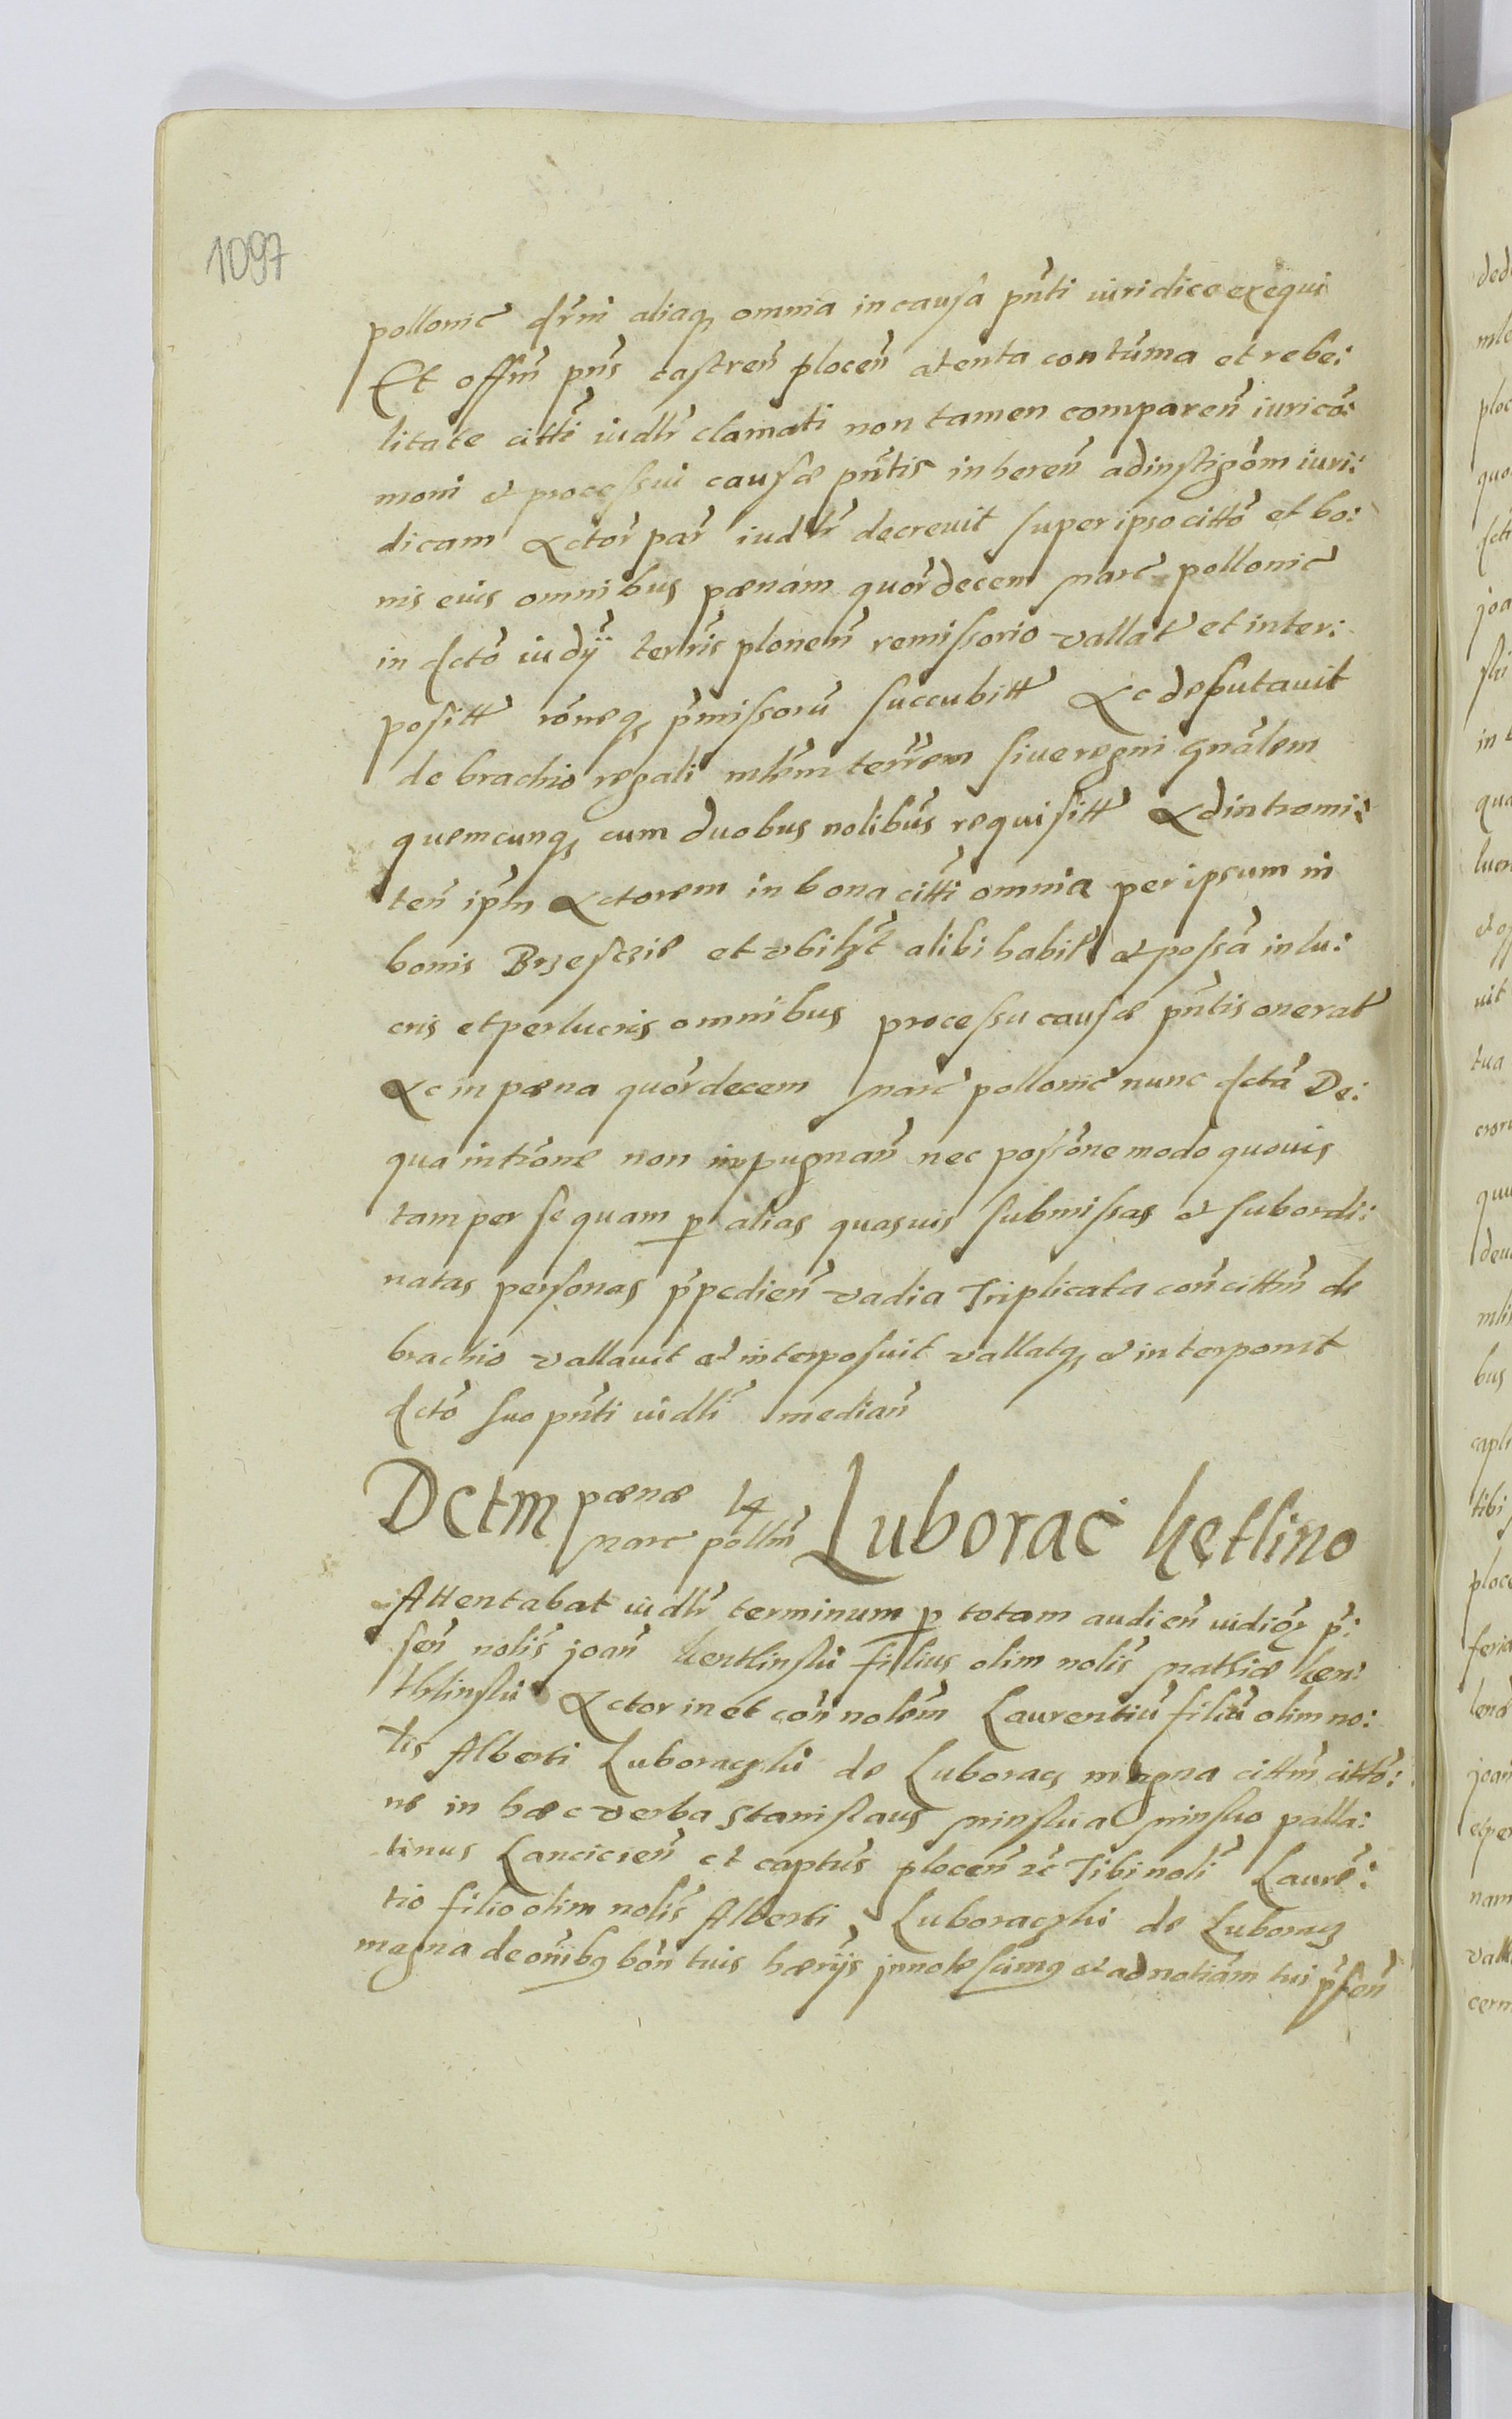 1097
pollonic dr̃m aliaq, omnia in causa pñti iuridice exequi
Et offm̃ pñs castreñ ploceñ atenta contuma et rebe:
litate citti iudlr clamati non tamen compareñ iurico:
moni et processui causæ pñtis inhereñ ad instigom̃ iuri:
dicam Actor̃ par̃ iudlr decreuit super ipso citto et bo:
nis eius omnibus pænam quor̃decem marc pollonic
in dcto iudÿ terr̃is ploneñ remissorio vallat et inter:
positt rõneq, pr̃missorũ succubitt Ac deputauit
de brachio regali mlem̃ terr̃em siue regni gnãlem
quemcunq, cum duobus nolibũs requisitt Ad intromi:
teñ ipm̃ Actorem in bona citti omnia per ipsum in
bonis Brzescie et vbilzt alibi habit et possa in lu:
cris et perlucris omnibus processu causæ pñtis onerat
Ac in pæna quor̃decem marc pollonic nunc dcta De:
qua intrõne non inpugnañ nec possõne modo quouis
tam per se quam p alias quasuis submissas et subordi:
natas personas pr̃pedieñ vadia Triplicata coñ cittm̃ de
brachio vallauit et interposuit vallatq, et interponit
dcto suo pñti iudlr mediañ
Dctm pænæ 14 marc pollm̃ Luborac Ketlino
Attentabat iudlr terminum p totam audieñ iudior̃ pr̃:
señ nolis̃ joañ kenthlinski filius olim nolis̃ mathiæ ken:
thlinski Actor in et coñ nolem̃ Laurentiũ filiũ olim no:
lis Alberti Luboraczki de Luboracz magna cittm̃ citto:
ne in hæc verba Stanislaus minski a minsko palla:
tinus Lancicieñ et captũs ploceñ zc̃ Tibi noli Laurẽ:
tio filio olim nolis̃ Alberti Luboraczki de Luboracz
magna de oñibg bon̄ tuis hærÿs jnnotescimg et ad notiam̃ tui pr̃señ